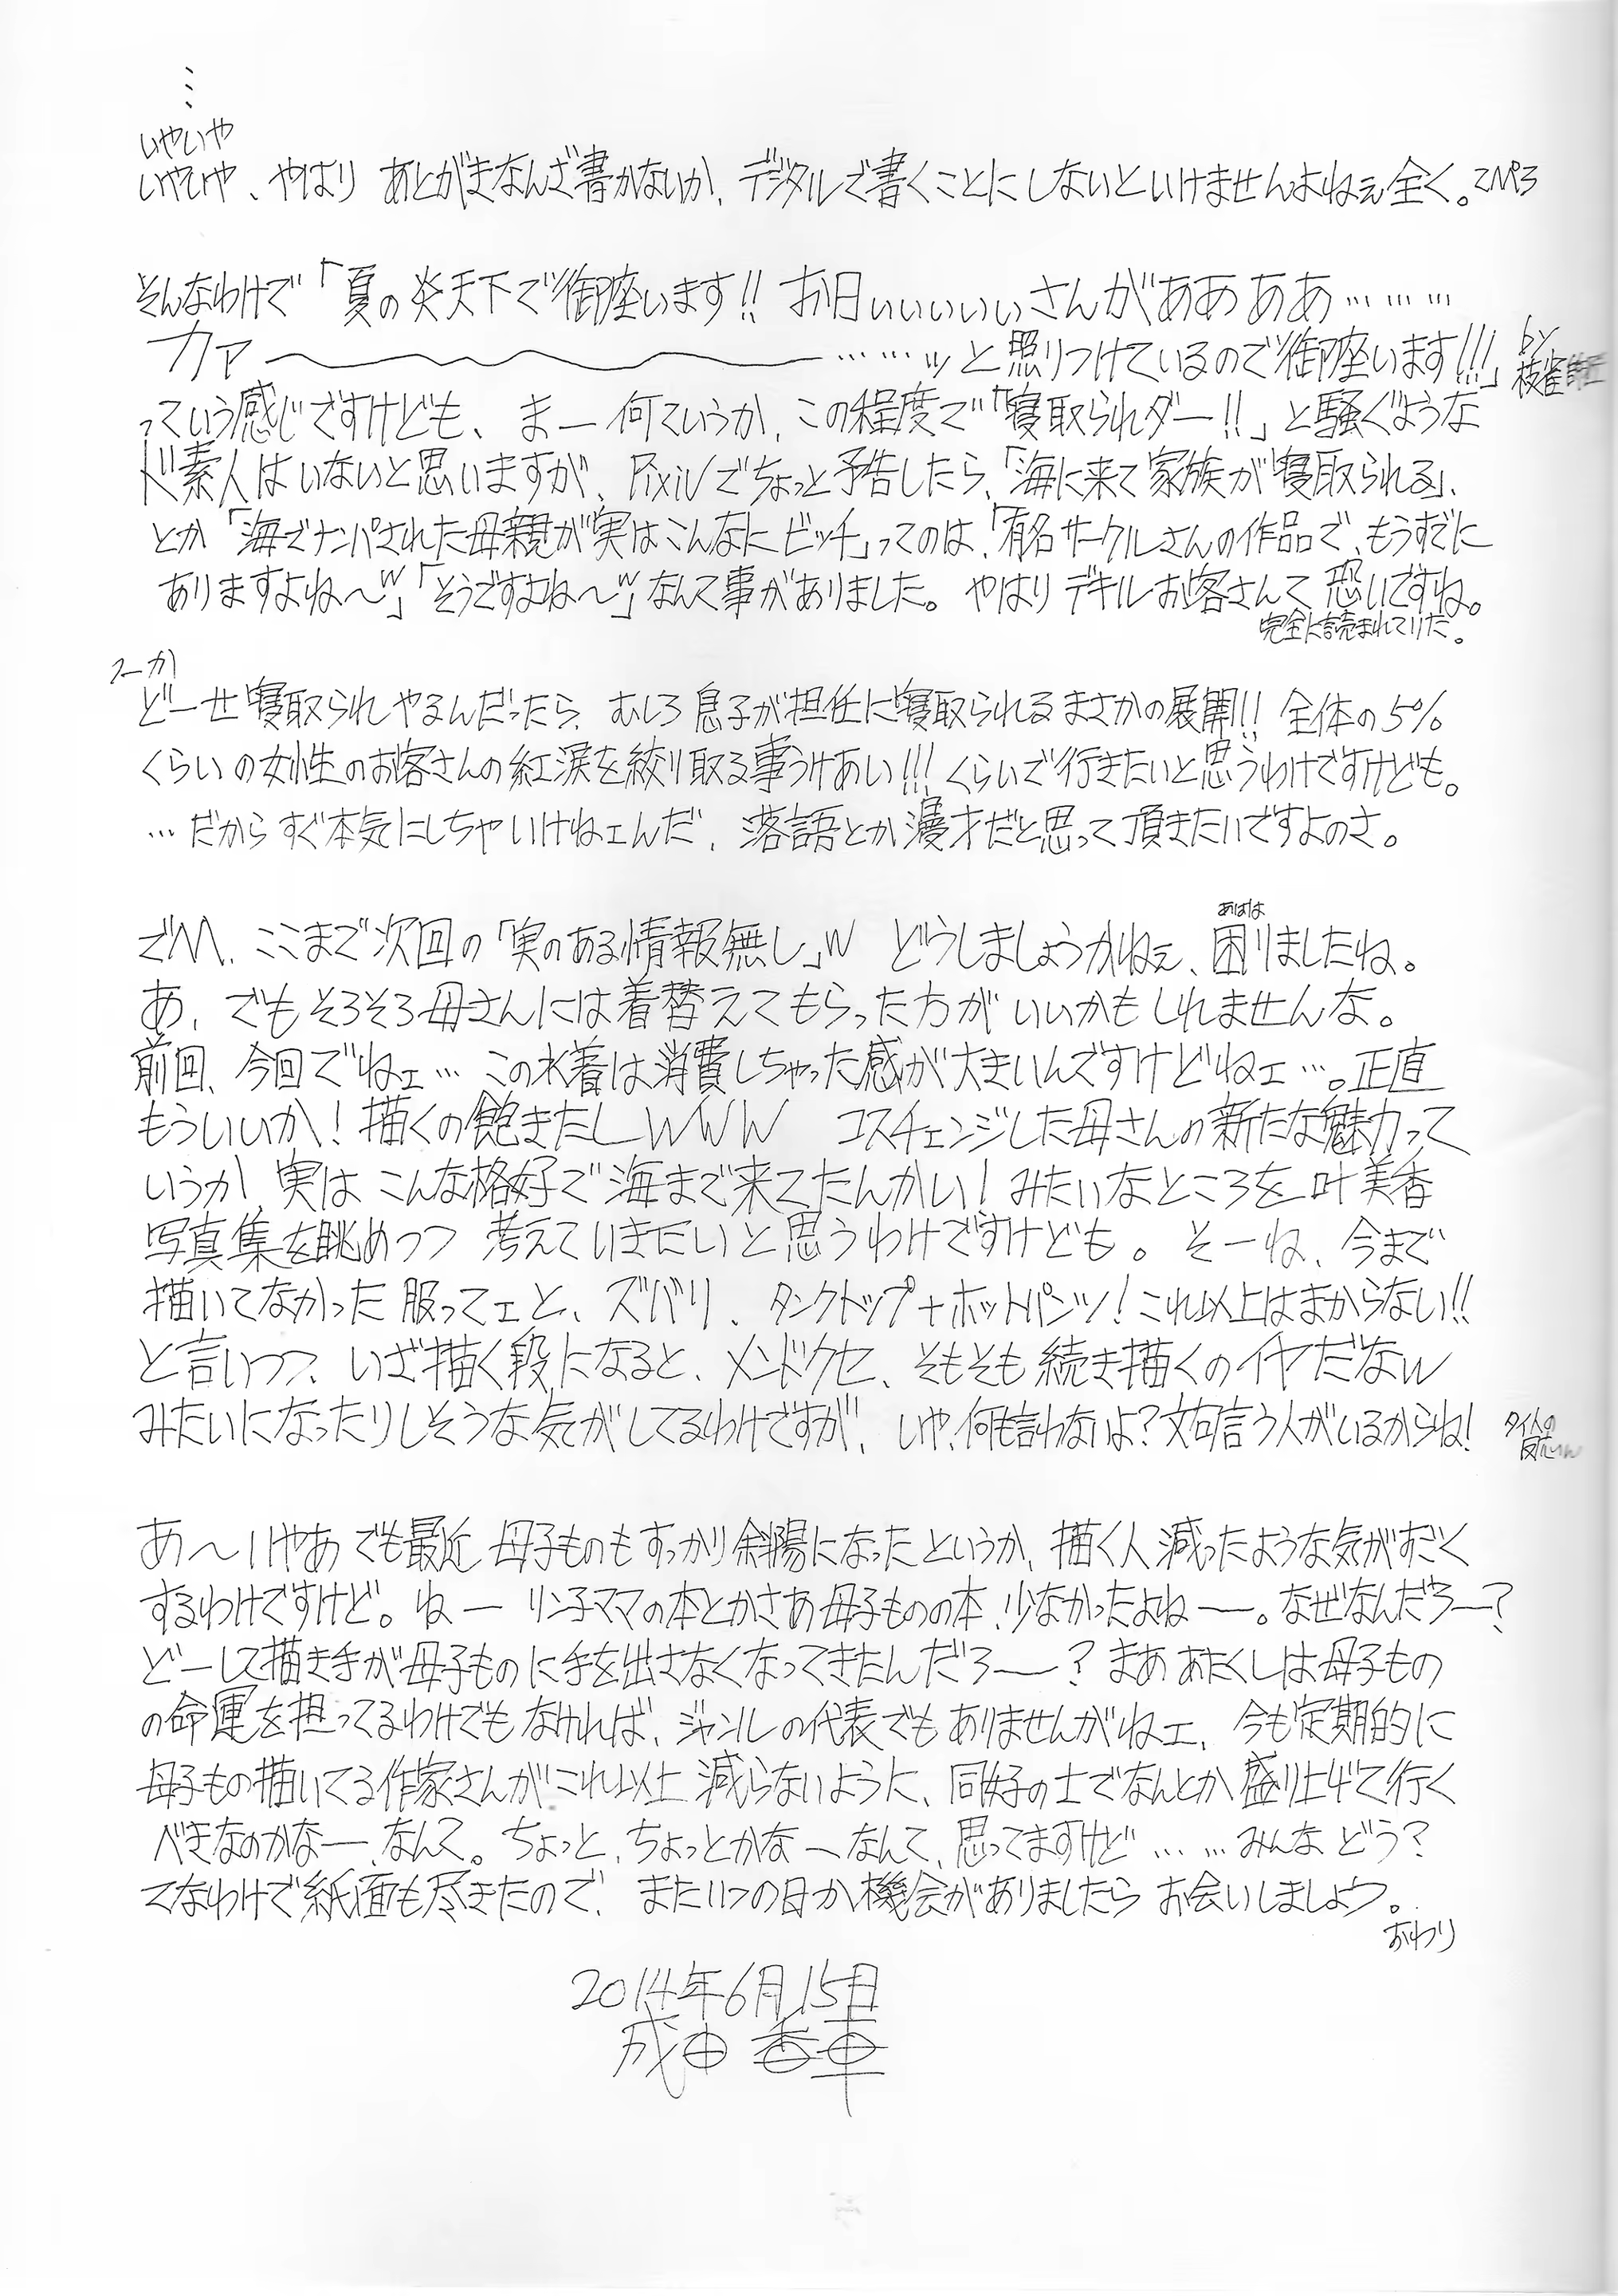 …
いやいや
いやいや、やはり あとがきなんざ書かないか、デジタルで書くことにしないといけませんよねぇ全く。
そんなわけで「夏の炎天下で御座います!! お日ぃぃぃぃぃさんがああああ………
カァ〜〜〜〜〜〜〜〜〜〜……ッと照りつけているので御座います!!!」by枝雀師匠
っていう感じですけども、まー何ていうか、この程度で「寝取られダー!!」と騒ぐような
ド素人はいないと思いますが、Pixivでちょっと予告したら、「海に来て家族が寝取られる」、
とか「海でナンパされた母親が実はこんなにビッチ」ってのは、「有名サークルさんの作品で、もうすでに
ありますよね〜w」「そうですよね〜w」なんて事がありました。やはりデキルお客さんて恐いですね。
完全に読まれていた。
つーか
どーせ寝取られやるんだったら、むしろ息子が担任に寝取られるまさかの展開!! 全体の5%
くらいの女性のお客さんの紅涙を絞り取る事うけあい!!! くらいで行きたいと思うわけですけども。
…だからすぐ本気にしちゃいけねェんだ、落語とか漫才だと思って頂きたいですよのさ。
でハハ、ここまで次回の「実のある情報無し」w どうしましょうかねぇ、困りましたね。
あはは
あ、でもそろそろ母さんには着替えてもらった方がいいかもしれませんな。
前回、今回でねェ…この水着は消費しちゃった感が大きいんですけどねェ…。正直
もういいか!描くの飽きたしwww コスチェンジした母さんの新たな魅力って
いうか、実はこんな格好で海まで来てたんかい!みたいなところを叶美香
写真集を眺めつつ 考えていきたいと思うわけですけども。そーね、今まで
描いてなかった服ってェと、ズバリ、タンクトップ+ホットパンツ!これ以上はまからない!!
と言いつつ、いざ描く段になると、メンドクセ、そもそも続き描くのイヤだなw
みたいになったりしそうな気がしてるわけですが、いや、何も言わないよ?文句言う人がいるからね!
あ〜いやあでも最近 母子ものもすっかり斜陽になったというか、描く人減ったような気がすごく
するわけですけど。ねー リン子ママの本とかさあ母子ものの本、少なかったよねー。なぜなんだろー?
どーして描き手が母子ものに手を出さなくなってきたんだろー?まああたくしは母子もの
の命運を担ってるわけでもなければ、ジャンルの代表でもありませんがねェ、今も定期的に
母子もの描いてる作家さんがこれ以上減らないように、同好の士でなんとか盛り上げて行く
べきなのかなー、なんて。ちょっと、ちょっとかなーなんて、思ってますけど……みんなどう?
てなわけで紙面も尽きたので、またいつの日か機会がありましたらお会いしましょう。
おわり
2014年6月15日
成田香車